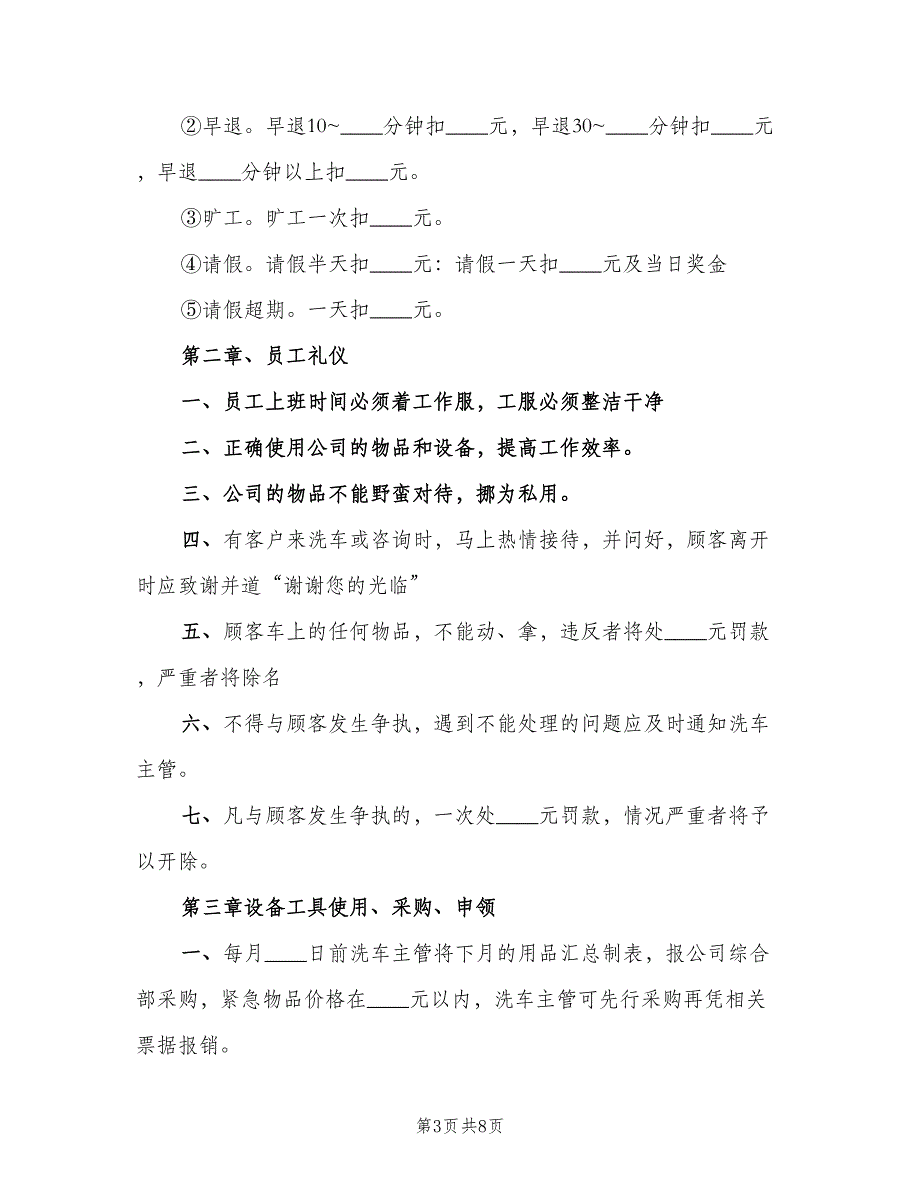 ②早退。早退10~____分钟扣____元，早退30~____分钟扣____元
，早退____分钟以上扣____元。
③旷工。旷工一次扣____元。
④请假。请假半天扣____元：请假一天扣____元及当日奖金
⑤请假超期。一天扣____元。
第二章、员工礼仪
一、员工上班时间必须着工作服，工服必须整洁干净
二、正确使用公司的物品和设备，提高工作效率。
三、公司的物品不能野蛮对待，挪为私用。
四、有客户来洗车或咨询时，马上热情接待，并问好，顾客离开
时应致谢并道“谢谢您的光临”
五、顾客车上的任何物品，不能动、拿，违反者将处____元罚款
，严重者将除名
六、不得与顾客发生争执，遇到不能处理的问题应及时通知洗车
主管。
七、凡与顾客发生争执的，一次处____元罚款，情况严重者将予
以开除。
第三章设备工具使用、采购、申领
一、每月____日前洗车主管将下月的用品汇总制表，报公司综合
部采购，紧急物品价格在____元以内，洗车主管可先行采购再凭相关
票据报销。
第3页共8页